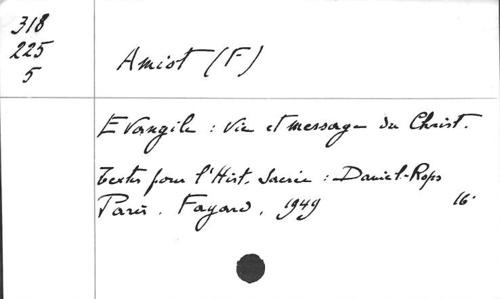 318
225
5
Amiot (F)
Evangile : Vie et message du Christ.
Textes pour l'Hist. Sacrée : Daniel-Rops
Paris. Fayard, 1949 16°